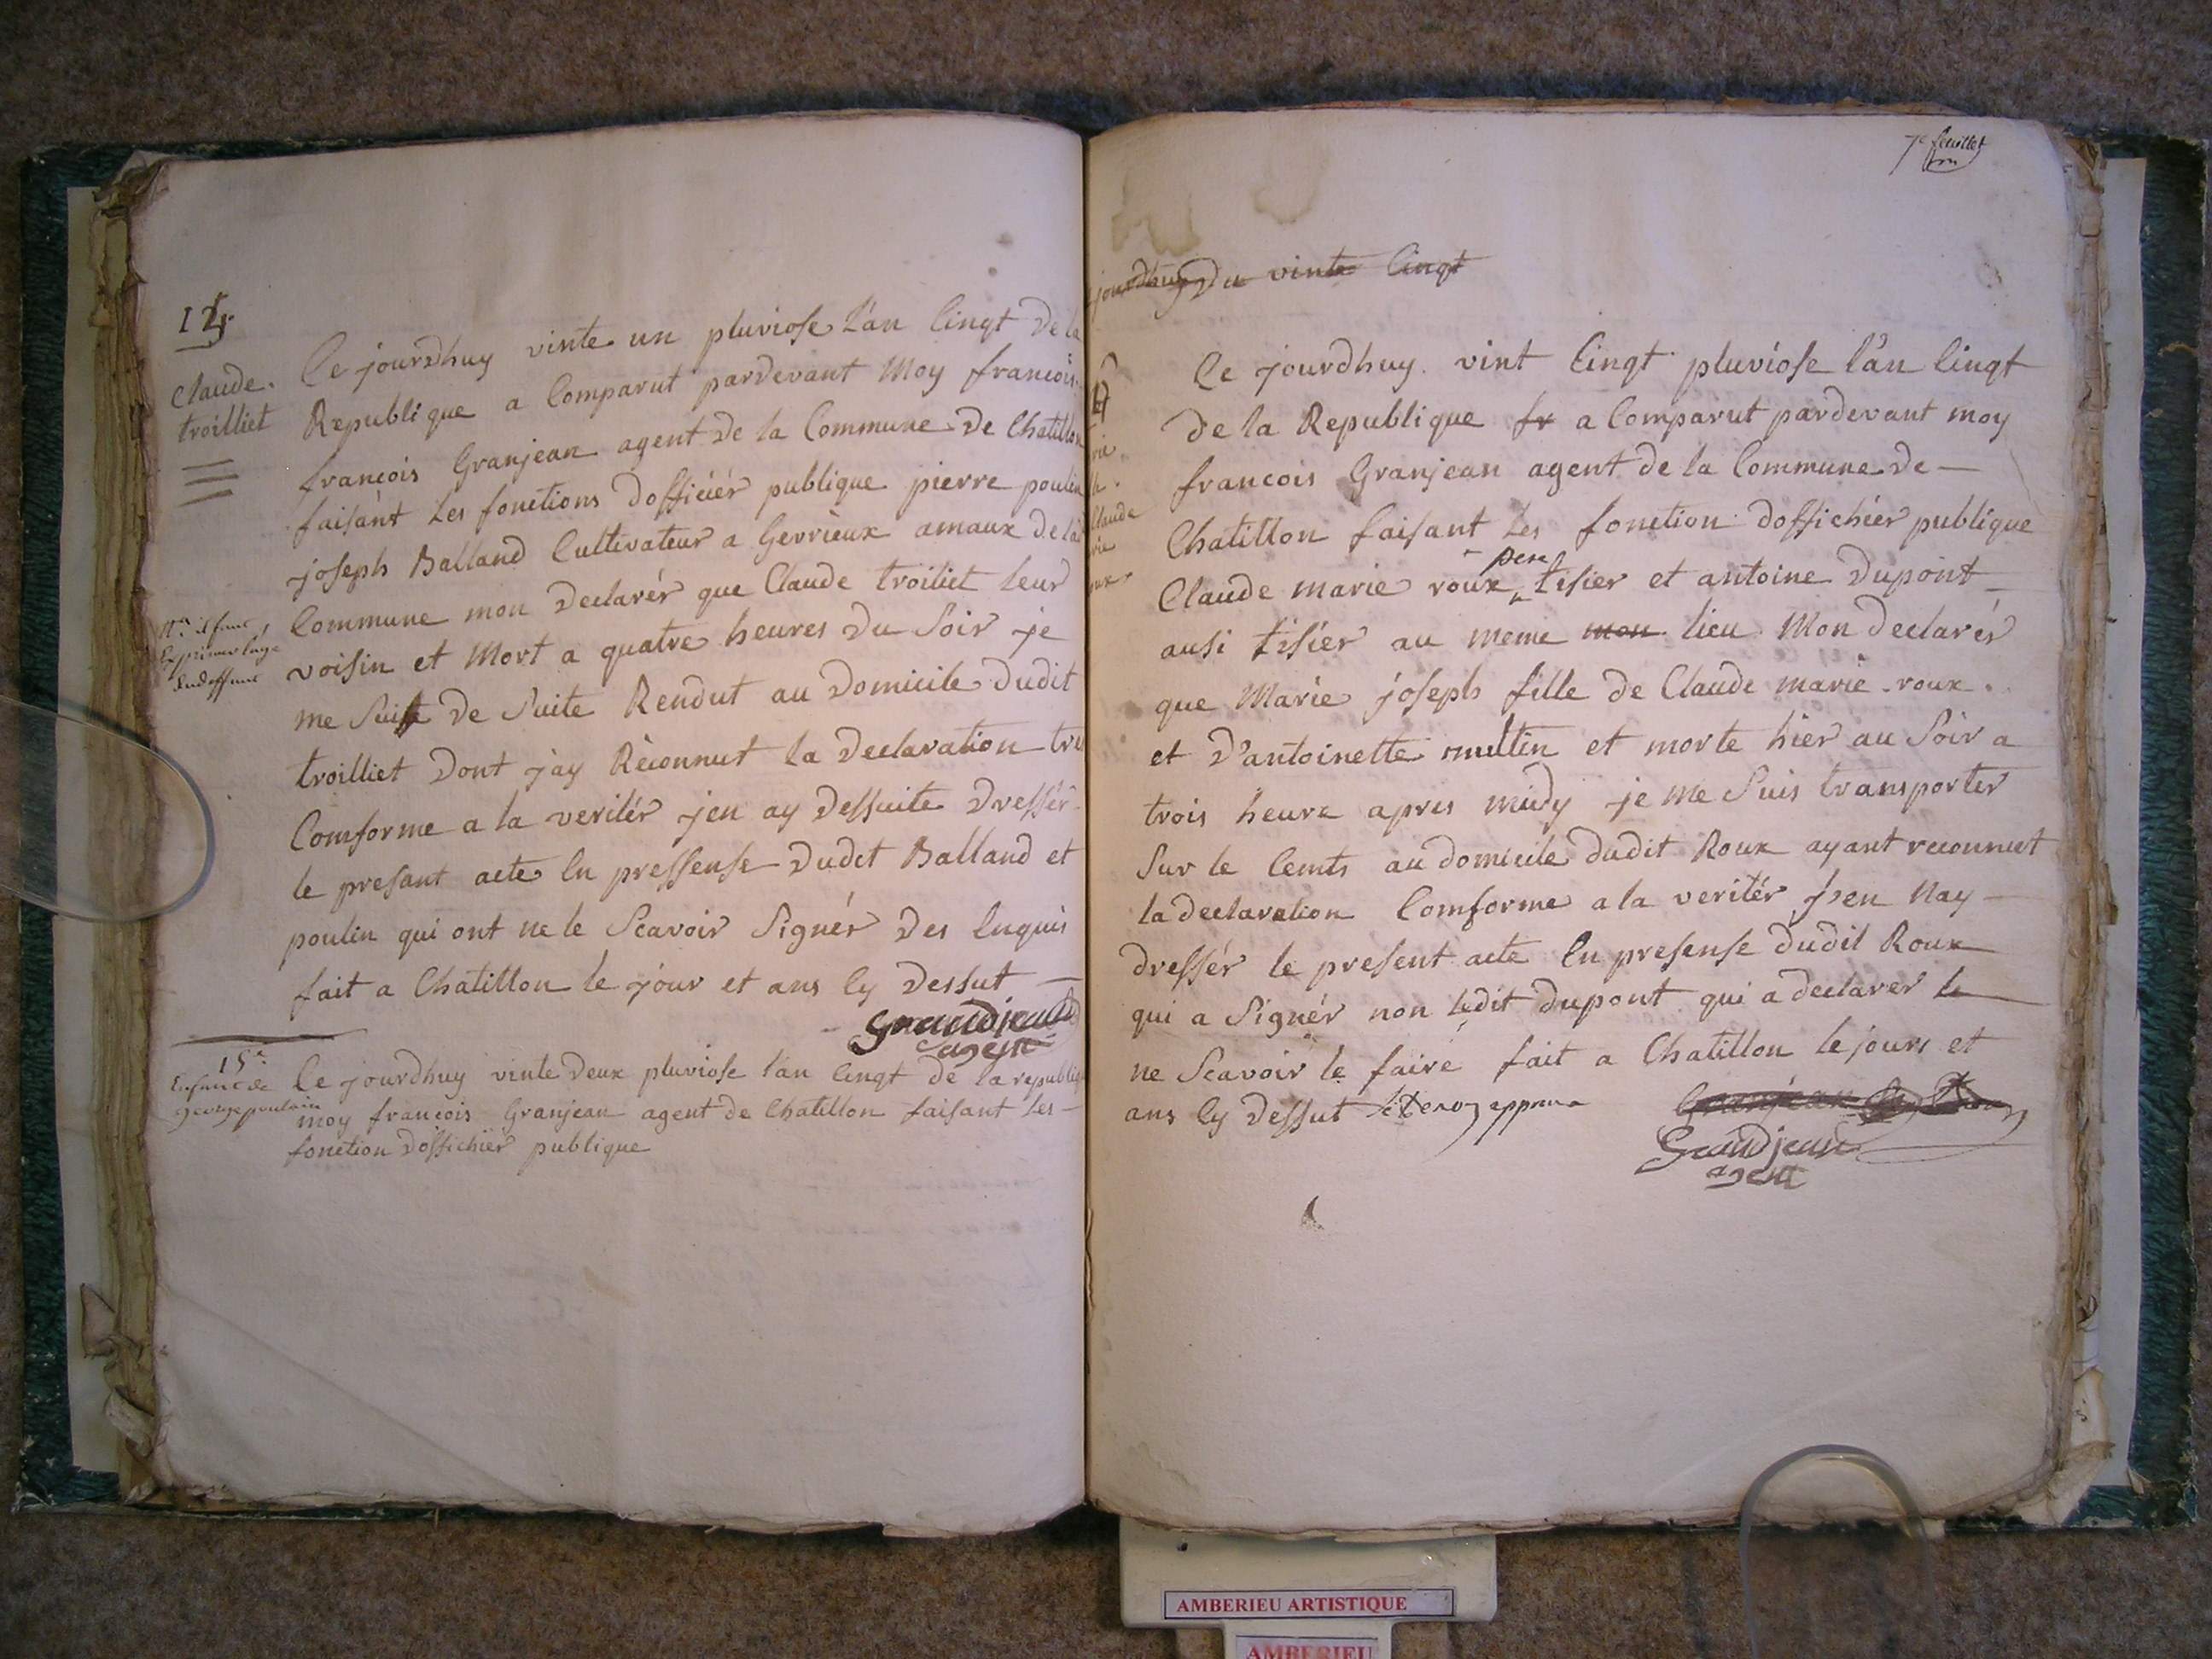 14
Claude
troilliet
Ce jourdhuy vinte un pluviose L'an Cinqt De la
Republique a Comparut pardevant Moy francois
francois Granjean agent De la Commune De Chatillon
faisant Les fonctions Dofficiér publique pierre poulin
joseph Balland Cultivateur a Gevrieux amaux De la
Commune mon Declarér que Claude troiliet leur
voisin et Mort a quatre heures Du Soir je
me Suis De Suite Rendut au Domicile Dudit
troilliet Dont jay Réconnut la Declaration
Comforme a la veritér jen ay Dessuite Dressér
le presant acte En pressense Dudit Balland et
poulin qui ont ne le Scavoir Signér Des Enquis
fait a Chatillon le jour et ans Cy Dessut
Nta il faut
Exprimer lage
du deffunt
Grandjean
agent
15e
Enfant de
george poulain
Ce jourdhuy vinte Deux pluviose l'an Cinqt de la republique
moy francois Granjean agent de Chatillon faisant Les
fonction Doffichiér publique
7e feuillet
jourdhuy Du vinte Cinqt
Ce jourdhuy vint Cinqt pluviose l'an Cinqt
de la Republique fr a Comparut pardevant moy
francois Granjean agent de la Commune de
Chatillon faisant Les fonction doffichiér publique
pere
Claude marie roux tisier et antoine Dupont
ausi tisiér au meme mon lieu Mon Declarér
que Marie joseph fille de Claude marie roux
et D'antoinette multin et morte hier au Soir a
trois heure apres midy je me Suis transporter
Sur le Cemts au domicile dudit Roux ayant reconnut
la declaration Comforme a la veritér j'en Nay
dressér le present acte En presense dudit Roux
qui a Signér non ledit dupont qui a declarer le
ne Scavoir le faire fait a Chatillon le jours et
ans Cy Dessut
laude
Granjean
Grandjean
agent
AMBERIEU ARTISTIQUE
AMBERIEU